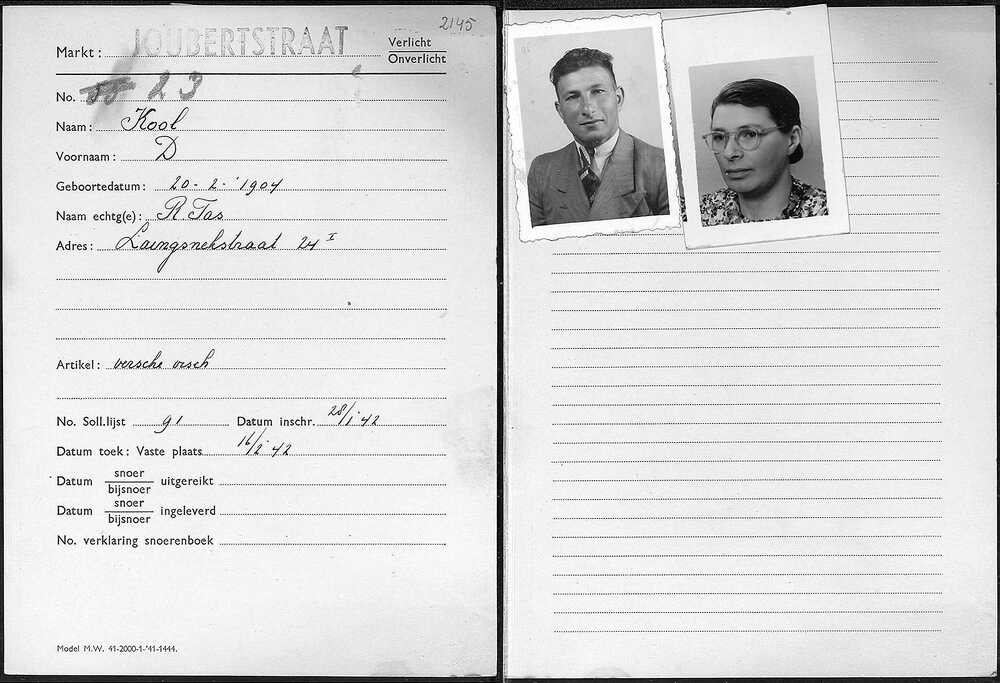 2145
Markt: JOUBERTSTRAAT Verlicht
Onverlicht
No. 55 23
Naam: Kool
Voornaam: D
Geboortedatum: 20-2-'1904
Naam echtg(e): R Tas
Adres: Laingsnekstraat 24 I
Artikel: versche visch
No. Soll.lijst 91 Datum inschr. 28/1 '42
Datum toek: Vaste plaats 16/2 '42
Datum snoer uitgereikt
bijsnoer
Datum snoer ingeleverd
bijsnoer
No. verklaring snoerenboek
Model M.W. 41-2000-1-'41-1444.